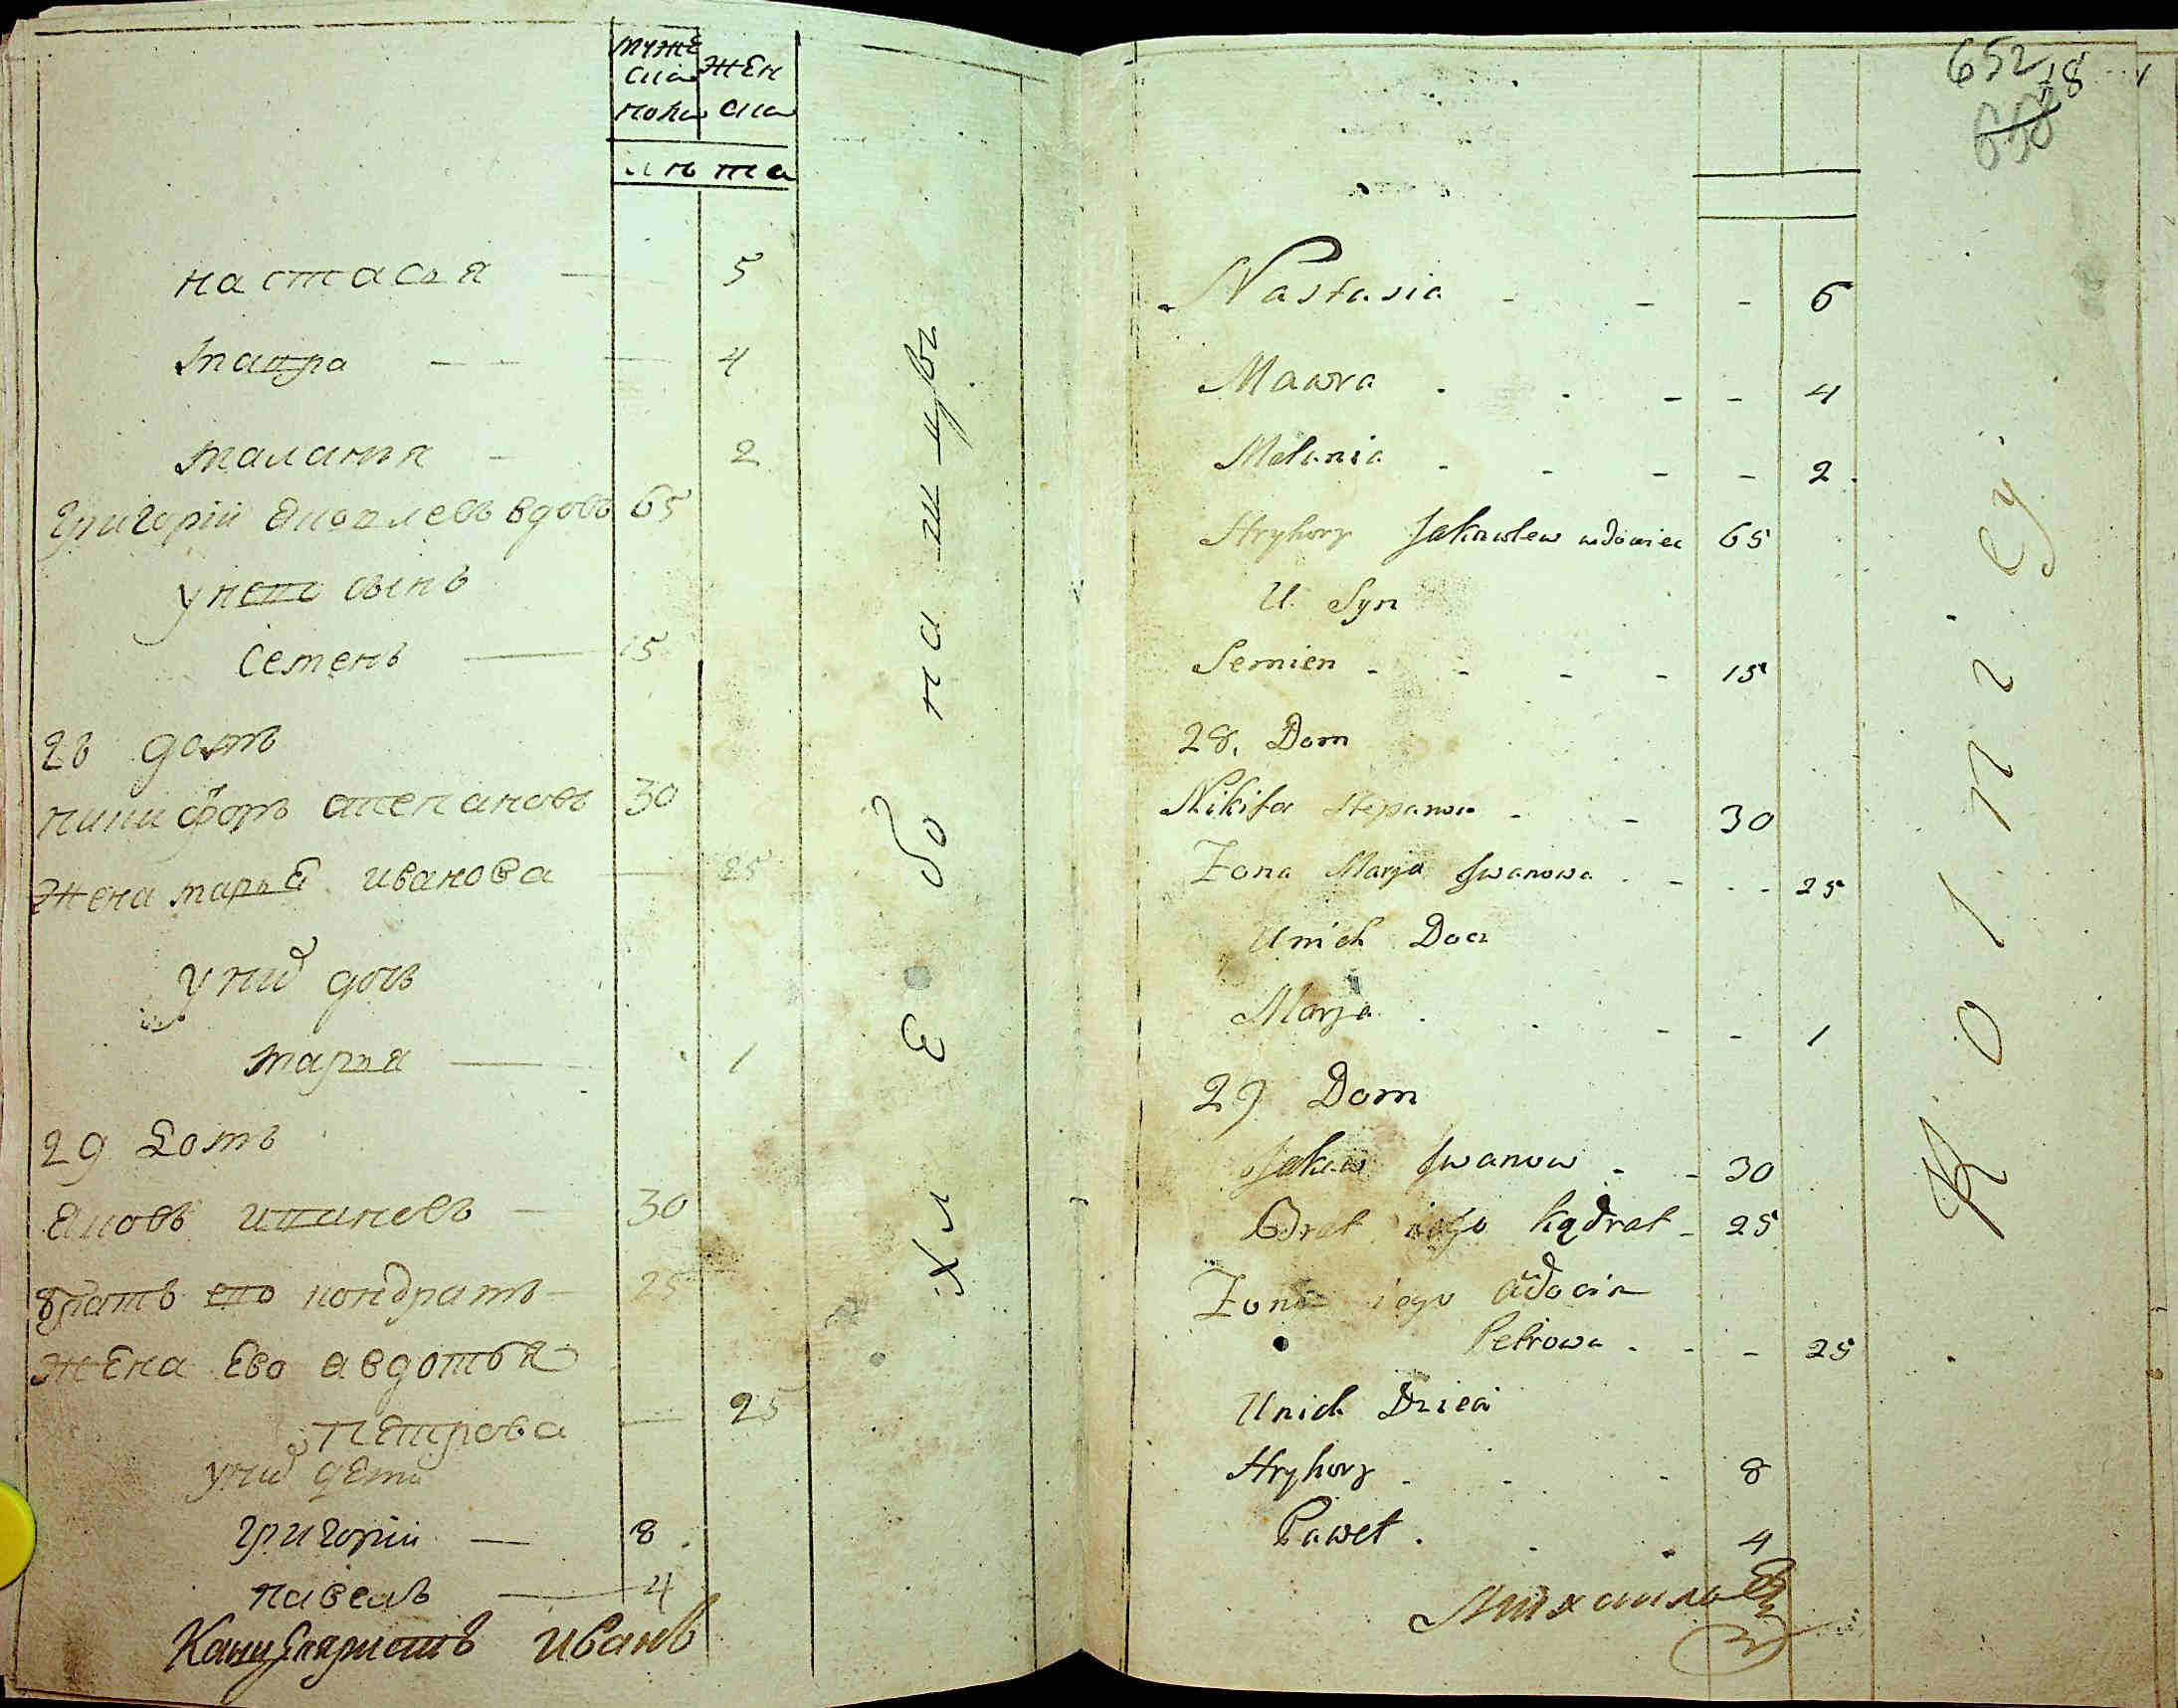 муже жен
ска ска
пола
лѣта
настасья — 5
мавра — — — 4
маланья - 2
григорiй яковлевъ вдовъ 65
унего сынъ
семенъ — 15
28 домъ
никифоръ степановъ 30
жена марья иванова — 25
уних дочь
марья — 1
29 домъ
яковъ ивановъ — 30
братъ его кондратъ — 25
жена Ево авдотья
Петрова — 25
уних дети
григорiи — 8
павелъ — 4
Канцеляристъ иванъ
652
28
Nastasia - - - 5
Mawra - - - - 4
Melania - - - - 2.
Hryhory Jakowlew wdowiec 65
U Syn
Semien - - - - 15
28. Dom
Nikifor Stepanow - - 30
Zona Marja Jwanowa - - - - 25
Unich Docz
Marja - - - - 1
29 Dom
Jakow Jwanow - - 30
Brat iego kądrat - 25
Zona iego
Petrowa - - - 25
Unich Dzieci
Hryhory - - - 8
Paweł - - - 4